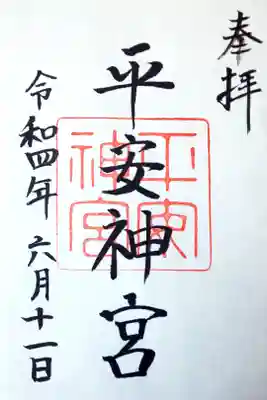 奉拝
平安神宮
平安神宮
令和四年 六月十一日